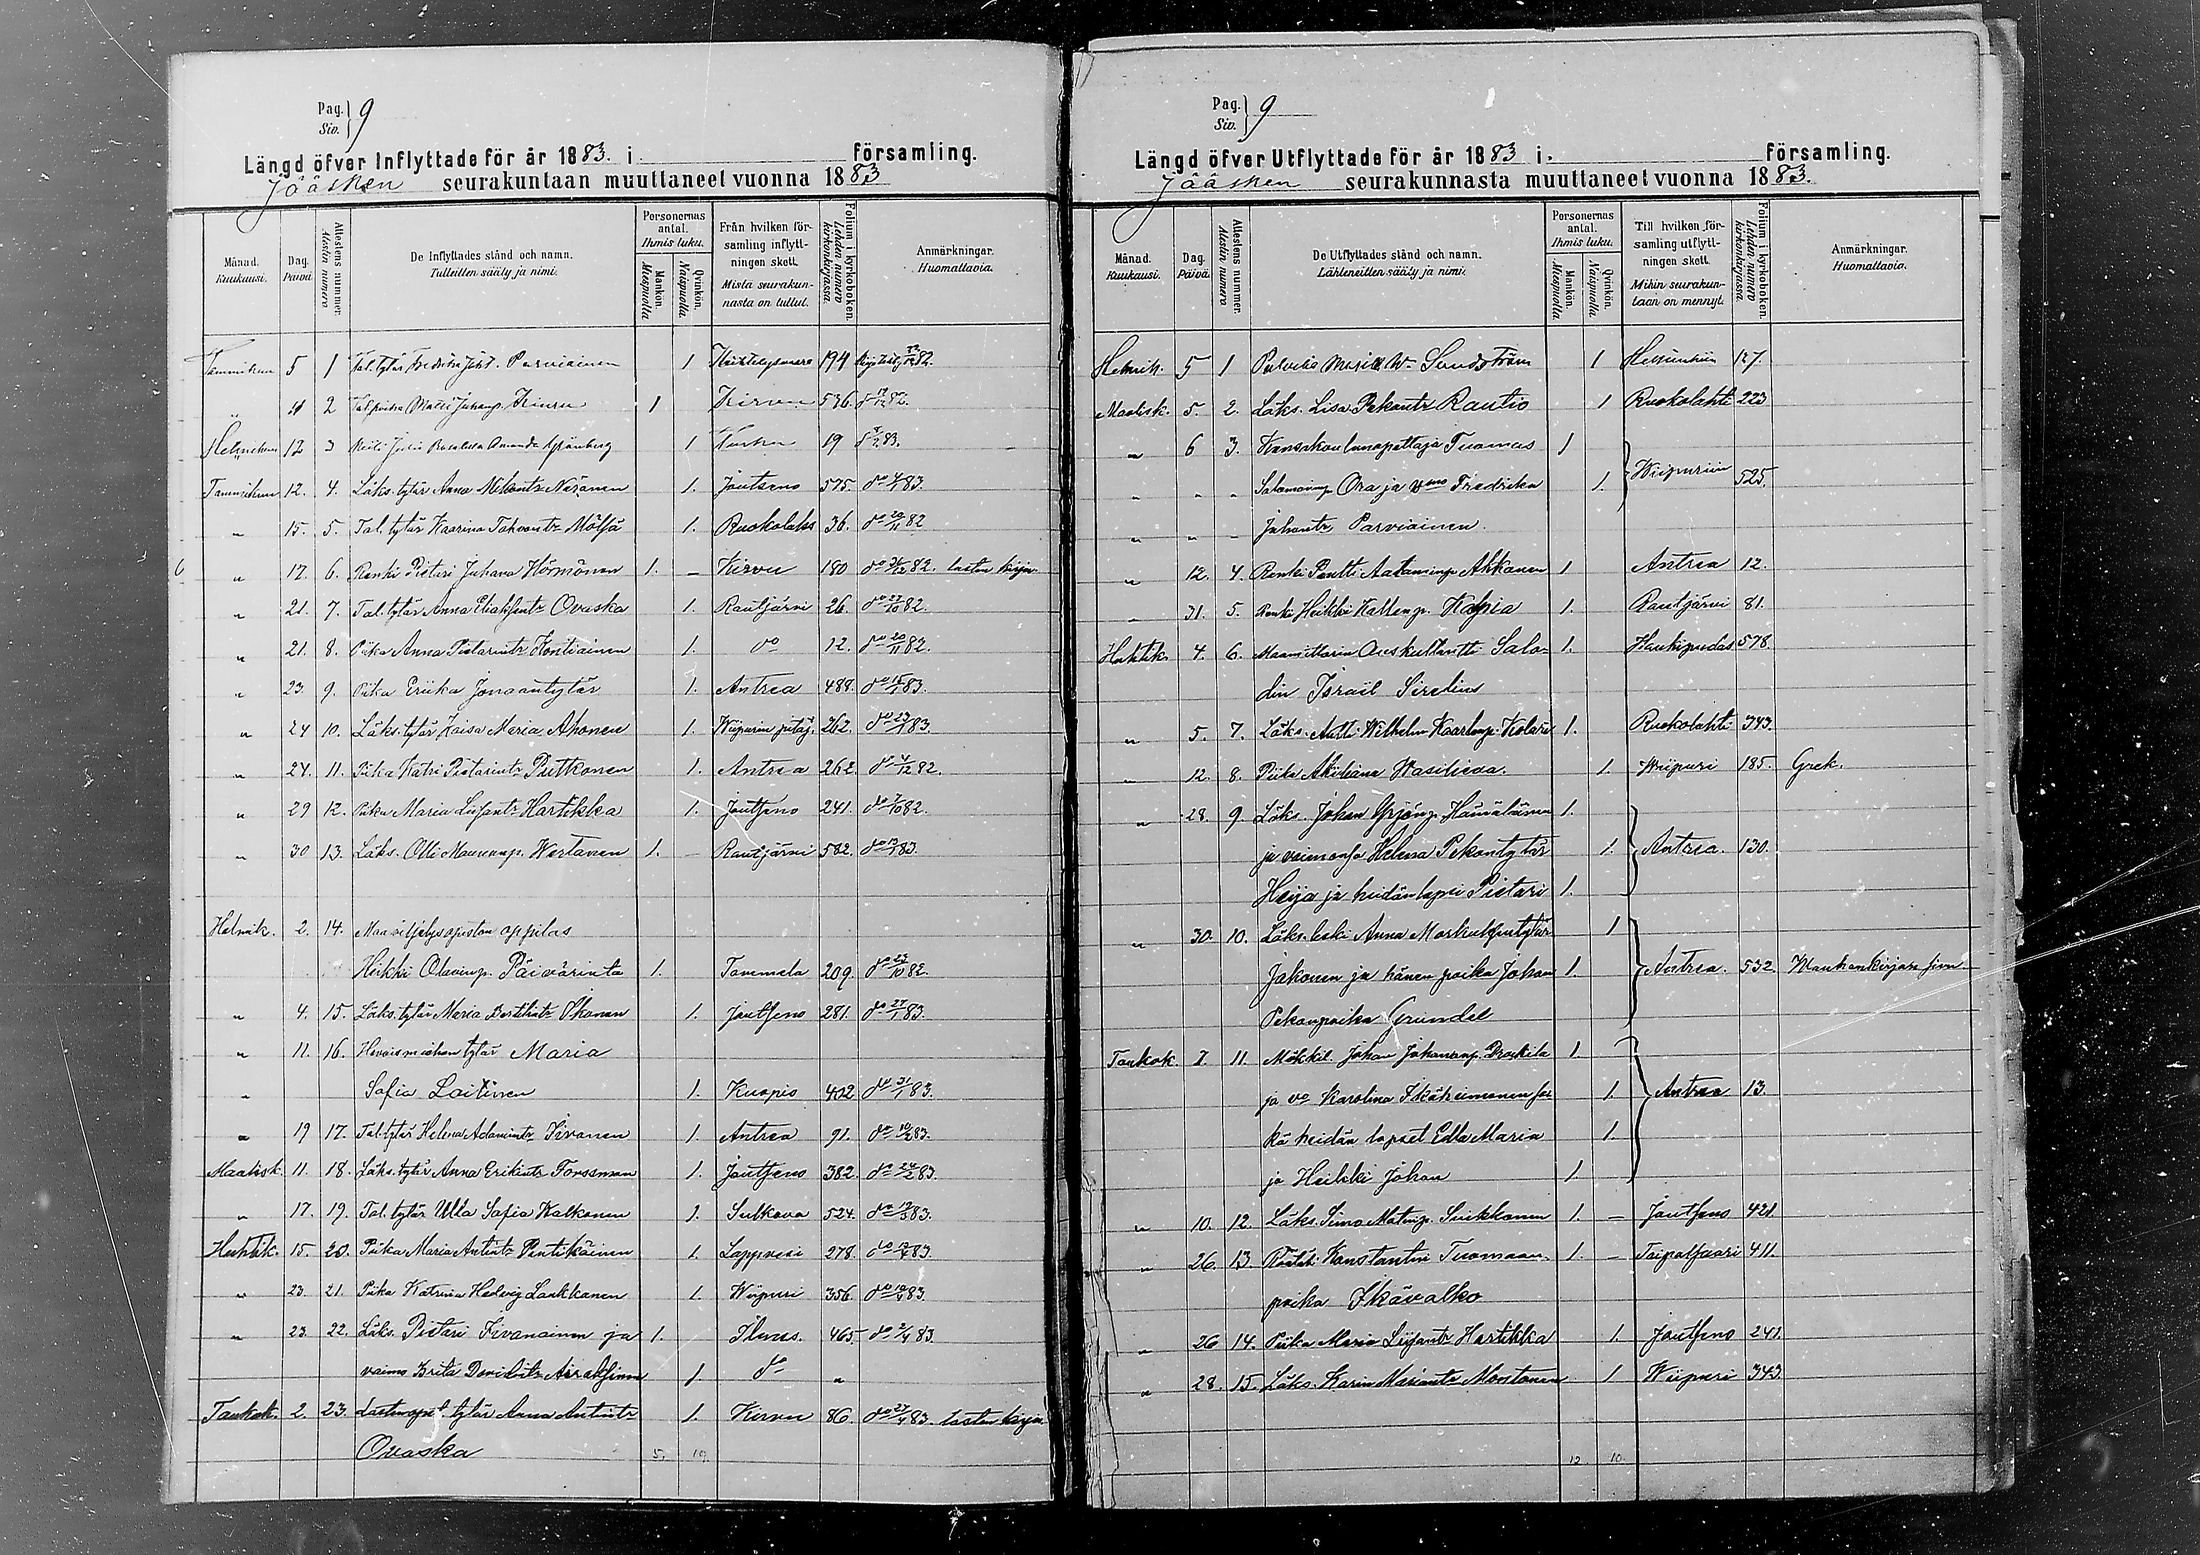 Pag. Siv. 9
Längd öfver Inflyttade för år 1883. i församling.
Jääsken seurakuntaan muuttaneet vuonna 1883
Månad. Kuukausi. Dag. Päivä. Attestens nummer. Atestin numero De Inflyttades stånd och namn. Tulleitten sääty ja nimi. Personernas antal. Ihmis luku. Mankön. Miespuolia Qvinkön. Naispuolia Från hvilken församling inflyttningen skett. Mistä seurakunnasta on tullut. Folium i kyrkoboken. Lehden numero kirkonkirjassa. Anmärkningar. Huomattavia.
Tammikuu 5 1 Tal. tytär Fredrika Juht. Parviainen 1 194
" 11 2 Tal. poika Matti Juhanp. Kinru 1 Kirvu 536
Helmikuu 12 3 Neiti Julia Rosalina Amanda Grönberg 1 19
Tammikuu 12. 4. Läks. tytär Anna Mikontr Näränen 1. Joutseno 575. do 4/1 83
" 15. 5. Tal. tytär Kaarina Tahvontr Mölsä 1. Ruokolaks 36. do 20/11 82
" 17. 6. Renki Pietari Juhana Hörmönen 1. – Kirvu 180 do 31/12 82. lasten kirja
" 21. 7. Tal. tytär Anna Eliaksentr Ovaska 1. Rautjärvi 26. do 27/10 82.
" 21. 8. Piika Anna Pietarintr Kontiainen 1. do 12. do 20/11 82.
" 23. 9. Piika Eriika Jonaantytär 1. Antrea 488. do 15/1 83.
" 24 10. Läks. tytär Kaisa Maria Ahonen 1. Wiipurin pitäj. 262. do 23/1 83.
" 24. 11. Piika Katri Pietarintr Putkonen 1. Antrea 262. do 4/12 82.
" 29 12. Piika Maria Liisantr Hartikka 1. Joutseno 241. do 7/10 82.
" 30 13. Läks. Olli Mauncunp. Wertanen 1. – Rautjärvi 582. do 19/1 83.
Helmik. 2. 14. Maanviljelysopiston oppilas
Heikki Olavinp. Päivärinta 1. Tammela 209. do 23/10 82.
" 4. 15. Läks. tytär Maria Bertilintr Ikonen 1. Joutseno 281. do 27/1 83.
" 11. 16. Hevoismiehen tytär Maria
" Sofia Laitinen 1. Kuopio 402 do 31/1 83.
" 19 17. Tal. tytär Helena Adamintr Iivonen 1. Antrea 91. do 10/2 83.
Maalisk. 11. 18. Läks. tytär Anna Erikintr Forssman 1. Joutseno 382. do 24/2 83.
" 17. 19. Tal. tytär Ulla Sofia Kalkonen 1. Sulkava 524. do 12/3 83.
Huhtik. 15. 20. Piika Maria Antintr Pentikäinen 1. Lappvesi 278. do 83.
" 23. 21. Piika Katriina Hedvig Laukkanen 1. Wiipuri 356. do 10/4 83.
" 23. 22. Läks. Pietari Iivanainen ja 1. Ilmes. 465 do 2/4 83.
vaimo Brita Davidintr Airaksinen 1. do "
Toukok. 2. 23. Lastenopet. tytär Anna Antintr 1. Kirvu 86. do 27/4 83. lasten kirja
Ovaska 5. 19.
Pag. Siv. 9
Längd öfver Utflyttade för år 1883 i. församling.
Jääsken seurakunnasta muuttaneet vuonna 1883.
Månad. Kuukausi. Dag. Päivä. Attestens nummer. Atestin numero De Utflyttades stånd och namn. Lähteneitten sääty ja nimi. Personernas antal. Ihmis luku. Mankön. Miespuolia Qvinkön. Naispuolia Till hvilken församling utflyttningen skett. Mihin seurakuntaan on mennyt. Folium i kyrkoboken. Lehden numero kirkonkirjassa. Anmärkningar. Huomattavia.
Helmik. 5 1 Palvelia Maria W. Sundström 1 Helsinkiin 127.
Maalisk. 5. 2. Läks. Lisa Pekantr Rautio 1 Ruokolahti 223
" 6 3. Kansakoulunopettaja Tuomas 1
" " " Salomoninp. Ora ja vmo Fredrika 1. Wiipuriin 525.
" " " Juhantr Parviainen.
" 12. 4. Renki Pentti Aataminp. Ahkanen 1 Antrea 12.
" 31. 5. Renki Heikki Kallenp. Kapia 1. Rautjärvi 81.
Huhtik. 4. 6. Maamittarin Auskultantti Salo- 1. Haukipudas 578.
din Israil Sirelius
" 5. 7. Läks. Antti Wilhelm Kaarlonp. Kolari 1. Ruokolahti 343.
" 12. 8. Piika Akiliina Wasiliewa. 1. Wiipuri 185. Grek.
" 28. 9. Läks. Johan Yrjönp. Hämäläinen 1.
ja vaimonsa Helena Pekantytär 1. Antrea. 130.
Heijа ja heidän lapsi Pietari 1.
" 30. 10. Läks. leski Anna Markuksentytär 1
Jakonen ja hänen poika Johan 1. Antrea. 532
Pekanpoika Grundel
Toukok. 7. 11. Mökkil. Johan Johananp. 1
ja vo Karolina Ikäheimonen se- 1. Antrea 13.
kä heidän lapset Edla Maria 1.
ja Heikki Johan 1.
" 10. 12. Läks. Simo Matinp. Suikkanen 1. – Joutseno 421
" 26. 13. Räätäli Konstantin Tuomaan- 1. – Taipalsaari 411.
poika Ikävalko
" 26 14. Piika Maria Liisantr Hartikka 1. Joutseno 241.
" 28. 15. Läks. Karin Mariantr Montonen 1 Wiipuri 343.
12. 10.